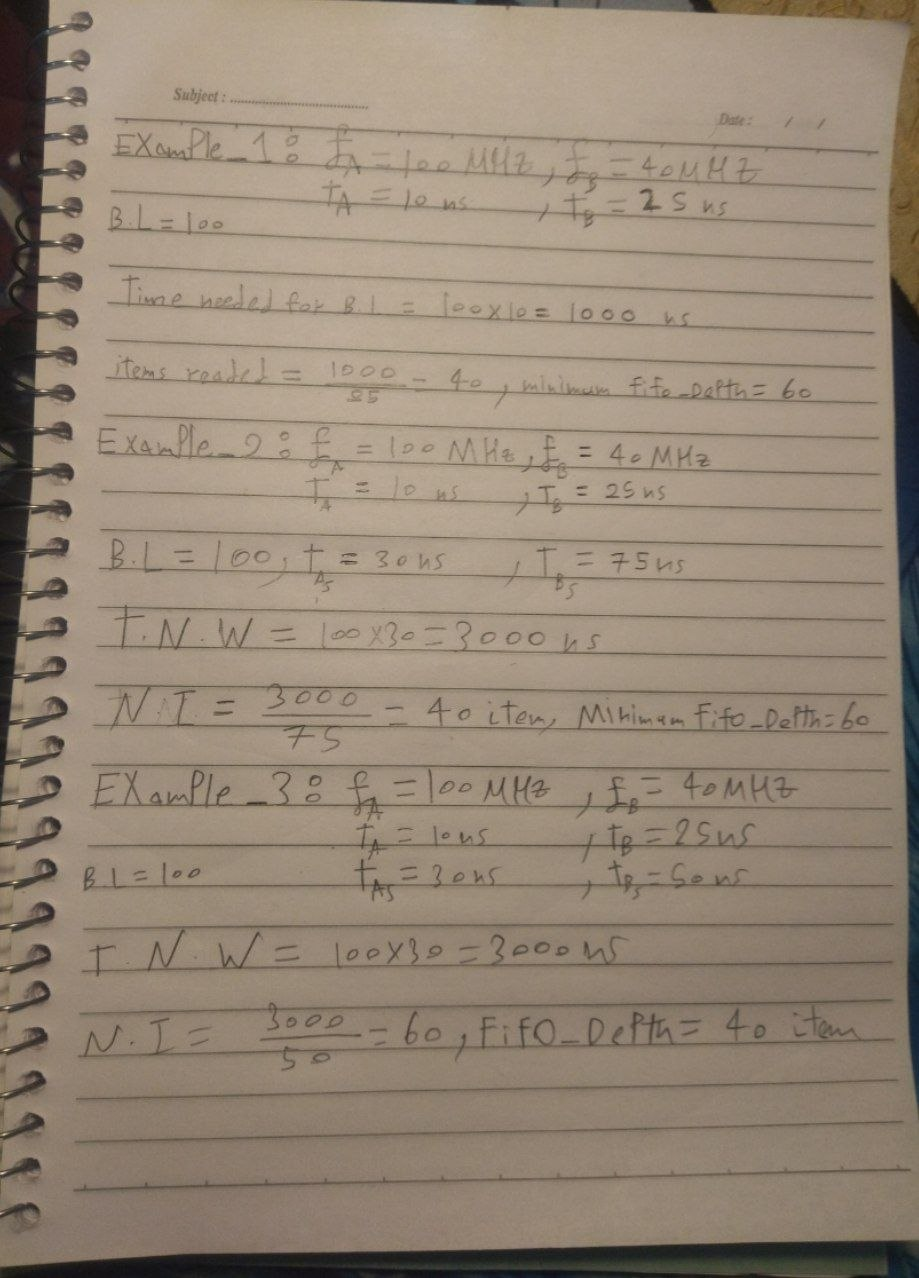 Subject : ........................................
Date : / /
EXample_1: f_A = 100 MHz, f_B = 40MHz
T_A = 10 ns , T_B = 25 ns
B.L = 100
Time needed for B.L = 100x10 = 1000 ns
items readed = 1000/25 = 40, minimum fifo_DePth = 60
Example_2: f_A = 100 MHz, f_B = 40 MHz
T_A = 10 ns , T_B = 25 ns
B.L = 100, t_As = 30 ns , T_Bs = 75 ns
T.N.W = 100x30 = 3000 ns
N.I = 3000/75 = 40 item, Minimum Fifo_DePth = 60
EXamPle_3: f_A = 100 MHz , f_B = 40MHz
T_A = 10ns , t_B = 25ns
B.L = 100 t_As = 30ns , t_Bs = 50 ns
T.N.W = 100x30 = 3000 ns
N.I = 3000/50 = 60, FifO_DePth = 40 item